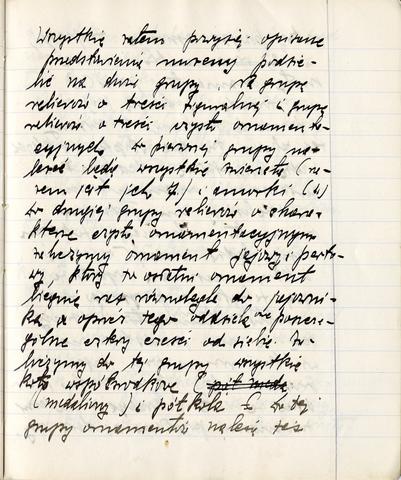 Wszystkie zatem powyżej opisane
przedstawienia możemy podzie-
lić na dwie grupy: na grupę
reliewów o treści figuralnej i grupę
reliewów o treści czysto ornamenta-
cyjnych. W pierwszej grupy na-
leżeć będą wszystkie zwierzęta (ra-
zem jest ich 7.) i amorki (4)
w drugiej grupy reliewów o chara-
kterze czysto ornamentacyjnym
zaliczymy ornament jajowy i perło-
wy, który to ostatni ornament
biegnie raz równolegle do jajowni-
ka, a oprócz tego oddziela poszcze-
gólne cztery części od siebie. Za-
liczymy do tej grupy wszystkie
koła współśrodkowe (pół meda
(medaliony) i półkola. W tej
grupy ornamentów należą też